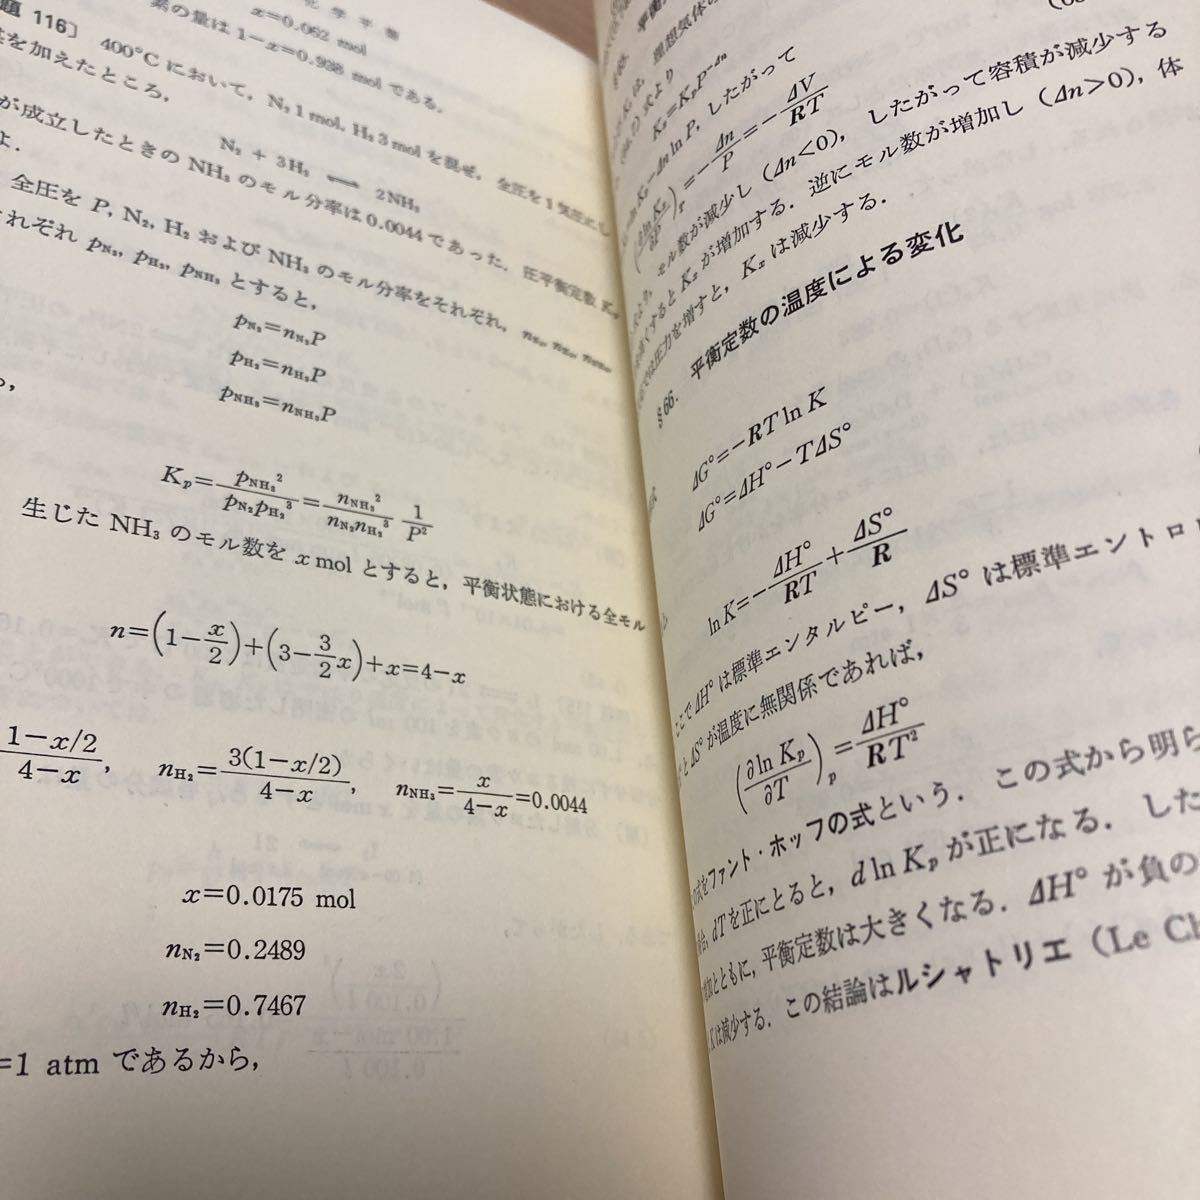 化学平衡
x=0.062 mol
素の量は 1−x=0.938 mol である.
題 116〕 400°C において, N₂ 1 mol, H₂ 3 mol を混ぜ, 全圧を 1 気圧にし
を加えたところ,
N₂ + 3H₂ ⇌ 2NH₃
が成立したときの NH₃ のモル分率は 0.0044 であった. 圧平衡定数 Kp
よ.
全圧を P, N₂, H₂ および NH₃ のモル分率をそれぞれ,
それぞれ pN₂, pH₂, pNH₃ とすると,
pN₂=nN₂P
pH₂=nH₂P
pNH₃=nNH₃P
Kp=pNH₃²/pN₂pH₂³=nNH₃²/nN₂nH₂³ 1/P²
生じた NH₃ のモル数を x mol とすると, 平衡状態における全モル
n=(1−x/2)+(3−3/2x)+x=4−x
1−x/2/4−x, nH₂=3(1−x/2)/4−x, nNH₃=x/4−x=0.0044
x=0.0175 mol
nN₂=0.2489
nH₂=0.7467
=1 atm であるから,
理想気体の
式より
Kx=KpP−Δn
−Δn ln P, したがって
(∂ln Kx/∂P)T=−Δn/P=−ΔV/RT
モル数が減少し (Δn<0), したがって容積が減少する
すると Kx が増加する. 逆にモル数が増加し (Δn>0), 体
では圧力を増すと, Kx は減少する.
§66. 平衡定数の温度による変化
ΔG°=−RT ln K
ΔG°=ΔH°−TΔS°
ln K=−ΔH°/RT+ΔS°/R
ここで ΔH° は標準エンタルピー, ΔS° は標準エントロ
と ΔS° が温度に無関係であれば,
(∂ln Kp/∂T)p=ΔH°/RT²
の式をファント・ホッフの式という. この式から明ら
dT を正にとると, d ln Kp が正になる. した
とともに, 平衡定数は大きくなる. ΔH° が負の
K は減少する. この結論はルシャトリエ (Le Ch